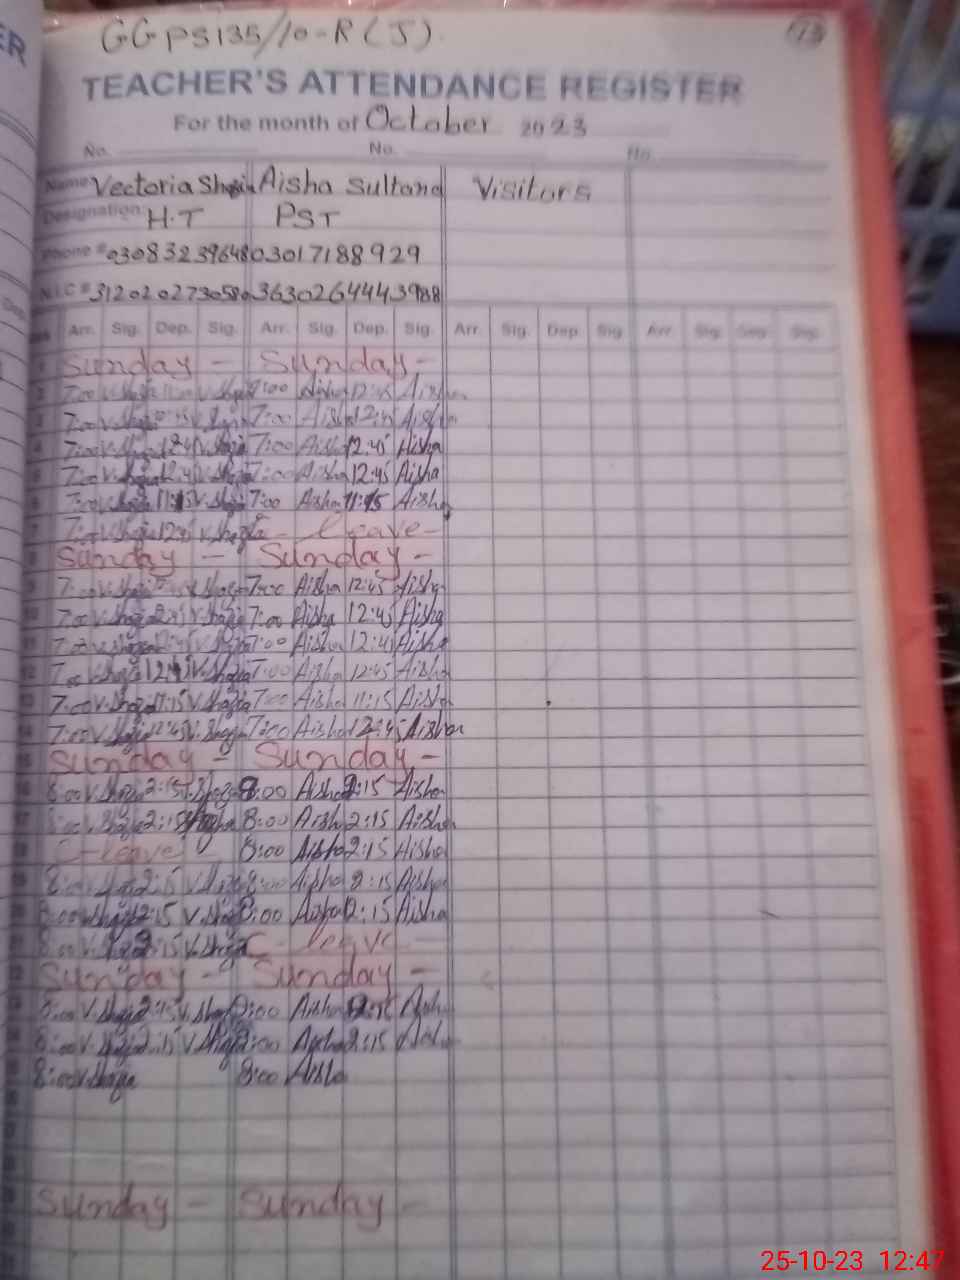 GGPS135/10-R(J).
13
TEACHER'S ATTENDANCE REGISTER
For the month of October 2023
No. No. No.
Name: Vectoria Shazia Aisha Sultana Visitors
Designation: H.T PST
Phone # 03083239648 03017188929
N.I.C # 3120202730580 3630264443988
Arr. Sig. Dep. Sig. Arr. Sig. Dep. Sig. Arr. Sig. Dep. Sig. Arr. Sig. Dep. Sig.
1 Sunday - Sunday -
2 7:00 V.Shazia V.Shazia 8:00 Aisha 12:45 Aisha
3 7:00 V.Shazia 7:00 Aisha 12:45 Aisha
4 7:00 V.Shazia 12:45 V.Shazia 7:00 Aisha 12:45 Aisha
5 7:00 V.Shazia 12:45 V.Shazia 7:00 Aisha 12:45 Aisha
6 7:00 V.Shazia 11:15 V.Shazia 7:00 Aisha 11:15 Aisha
7 7:00 V.Shazia 12:45 V.Shazia C - leave -
8 Sunday - Sunday -
9 7:00 V.Shazia 12:45 V.Shazia 7:00 Aisha 12:45 Aisha
10 7:00 V.Shazia 12:45 V.Shazia 7:00 Aisha 12:45 Aisha
11 7:00 V.Shazia 12:45 V.Shazia 7:00 Aisha 12:45 Aisha
12 7:00 V.Shazia 12:45 V.Shazia 7:00 Aisha 12:45 Aisha
13 7:00 V.Shazia 11:15 V.Shazia 7:00 Aisha 11:15 Aisha
14 7:00 V.Shazia 12:45 V.Shazia 7:00 Aisha 12:45 Aisha
15 Sunday - Sunday -
16 8:00 V.Shazia 2:15 V.Shazia 8:00 Aisha 2:15 Aisha
17 8:00 V.Shazia 2:15 Shazia 8:00 Aisha 2:15 Aisha
18 C-leave - 8:00 Aisha 2:15 Aisha
19 8:00 V.Shazia 2:15 V.Shazia 8:00 Aisha 2:15 Aisha
20 8:00 V.Shazia 12:15 V.Shazia 8:00 Aisha 12:15 Aisha
21 8:00 V.Shazia 2:15 V.Shazia C - leave -
22 Sunday - Sunday -
23 8:00 V.Shazia 2:15 V.Shazia 8:00 Aisha 2:15 Aisha
24 8:00 V.Shazia 2:15 V.Shazia 8:00 Aisha 2:15 Aisha
8:00 V.Shazia 8:00 Aisha
Sunday - Sunday -
25-10-23 12:47